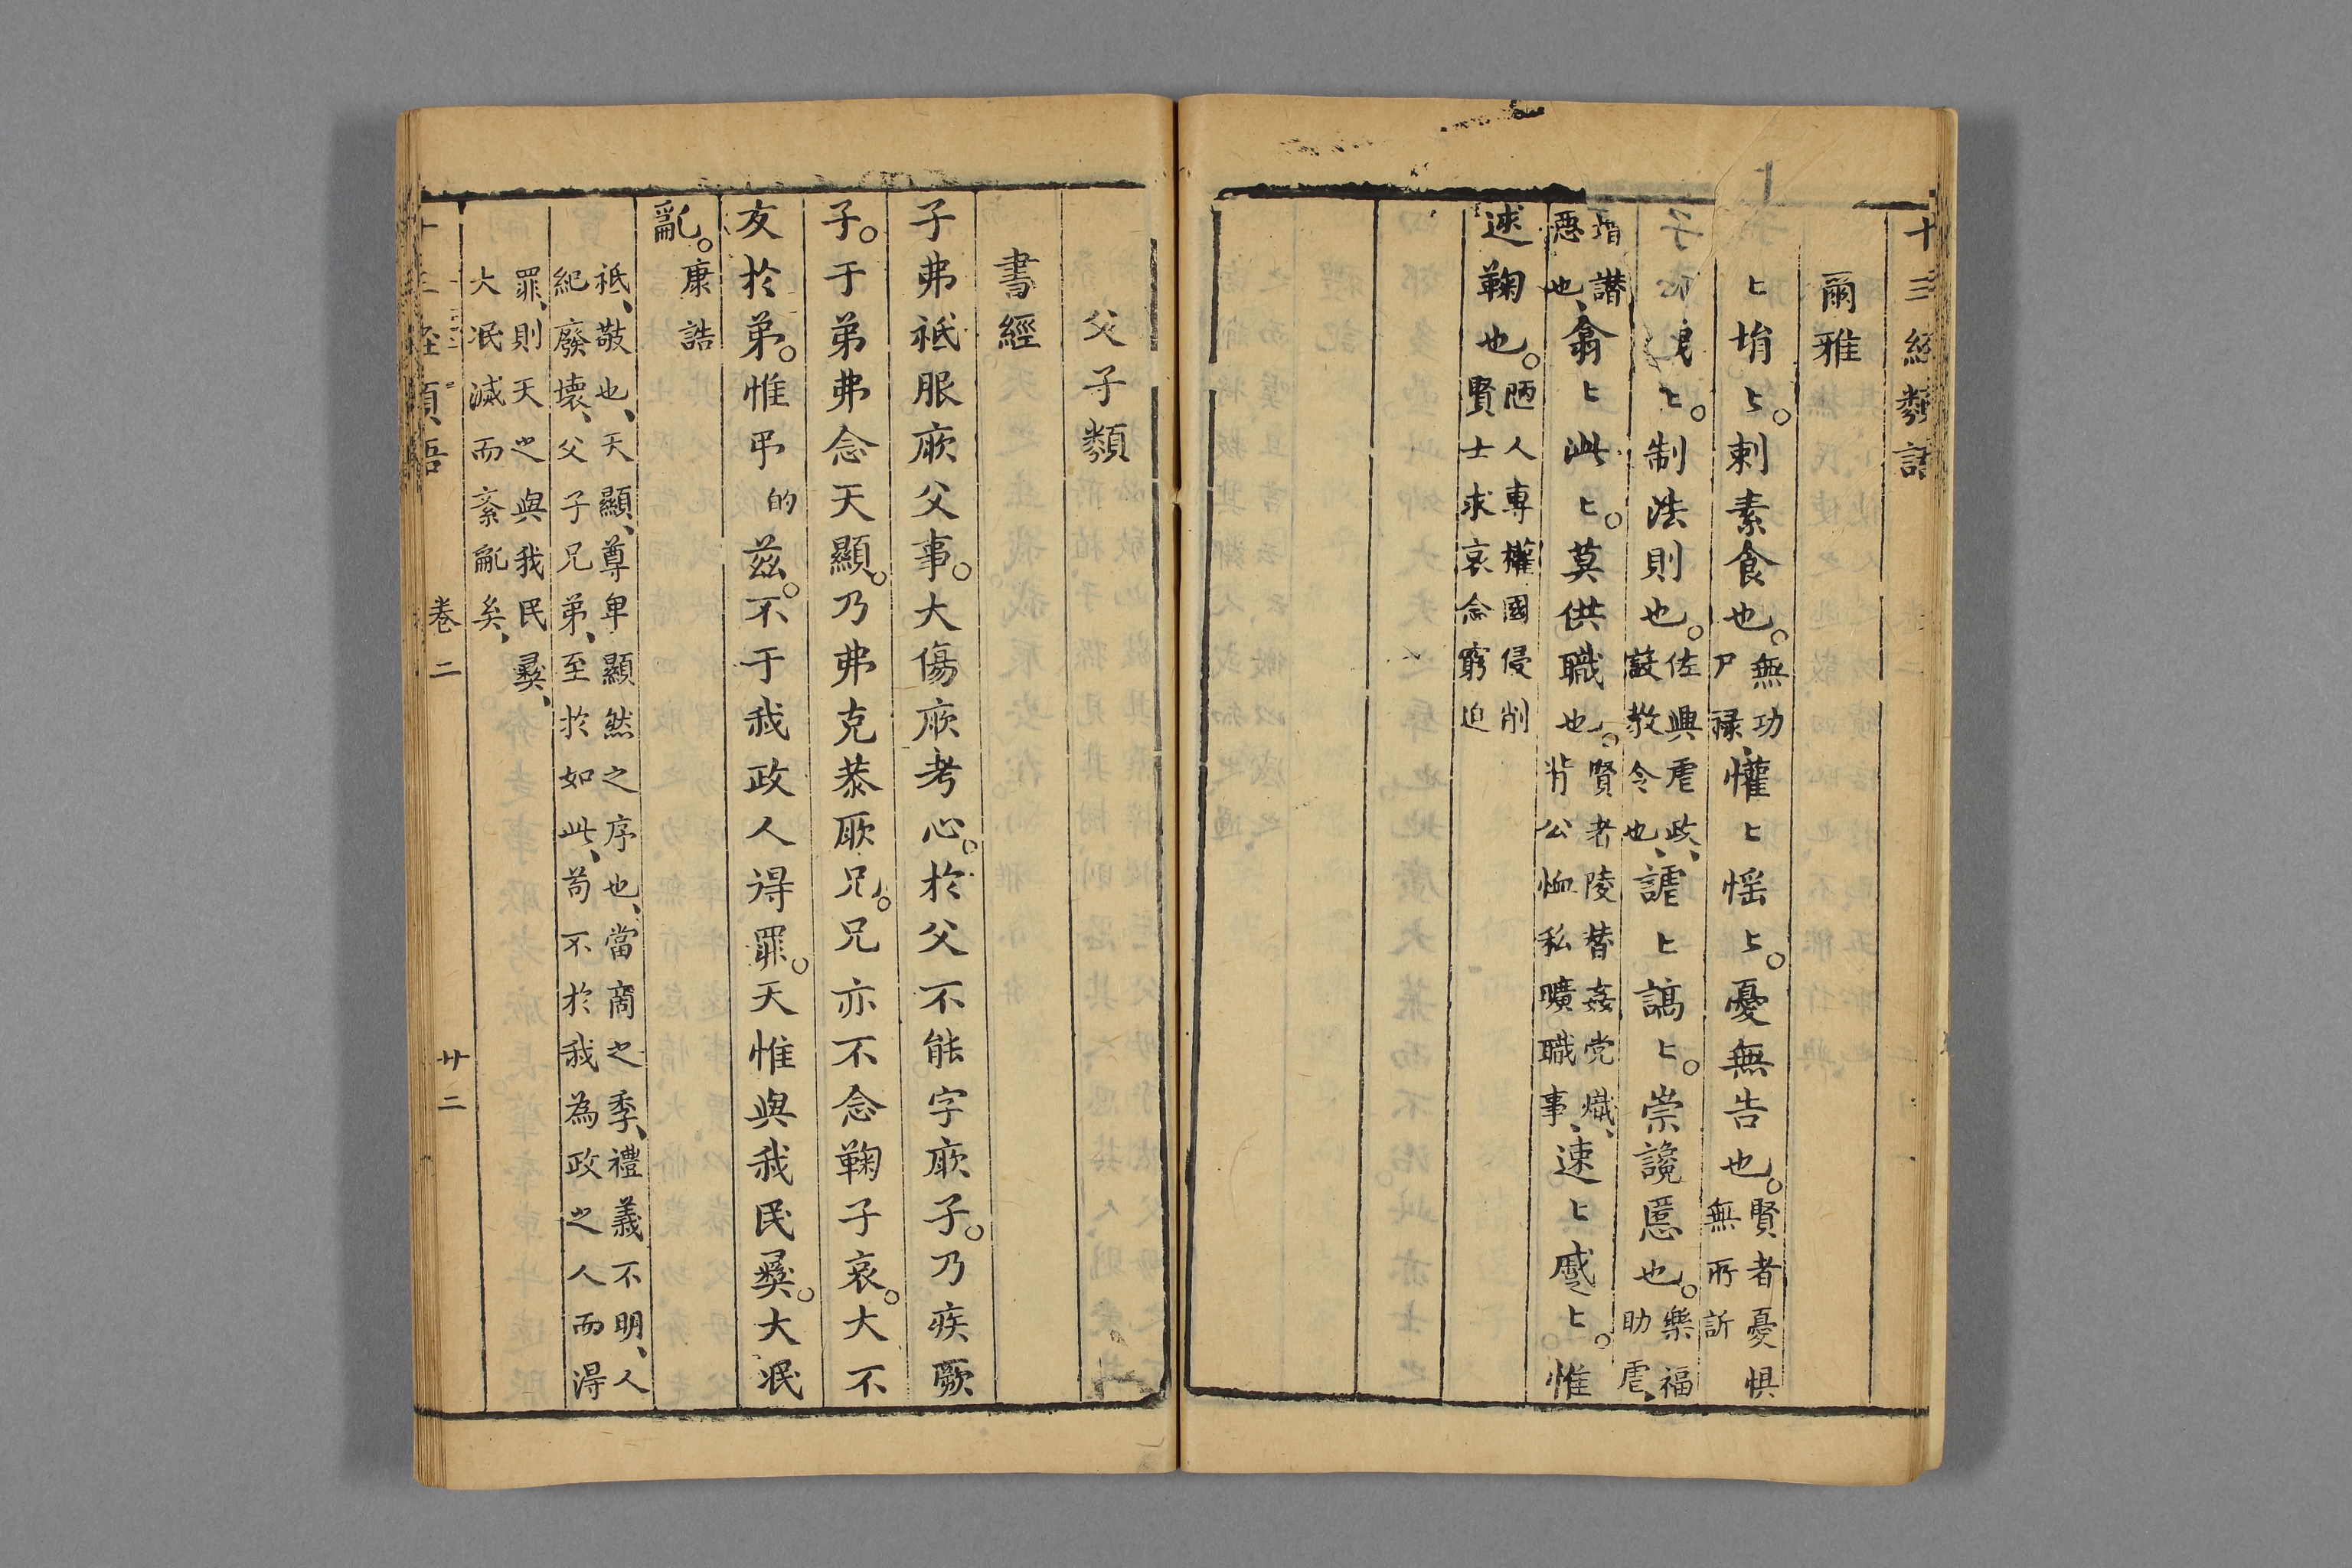 十三經類語
爾雅
〻堉〻。剌素食也。無功尸祿、懽〻愮〻。憂無告也。賢者憂惧無所訴
〻。制法則也。佐興虐政、設教令也、謔〻謞〻。崇讒慝也。樂福助虐、
增譖惡也、翕〻訿〻。莫供職也。賢者陵替姦党熾、背公恤私曠職事、速〻蹙〻。惟
逑鞠也。陋人專權國侵削賢士求哀念窮迫
父子類
書經
子弗祗服厥父事。大傷厥考心。於父不能字厥子。乃疾厥
子。于弟弗念天顯。乃弗克恭厥兄。兄亦不念鞠子哀。大不
友於弟。惟弔的兹。不于我政人得罪。天惟與我民彝。大泯
亂。康誥
祗、敬也、天顯、尊卑顯然之序也、當商之季、禮義不明、人
紀廢壞、父子兄弟、至於如此、苟不於我為政之人而得
罪、則天之與我民彝、
大泯滅而紊亂矣、
十三經類語 卷二 廿二